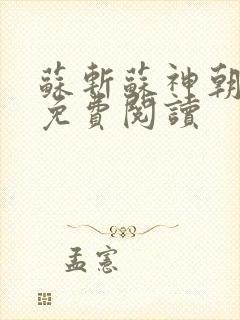 蘇斬蘇神朝
免費閱讀
孟憲